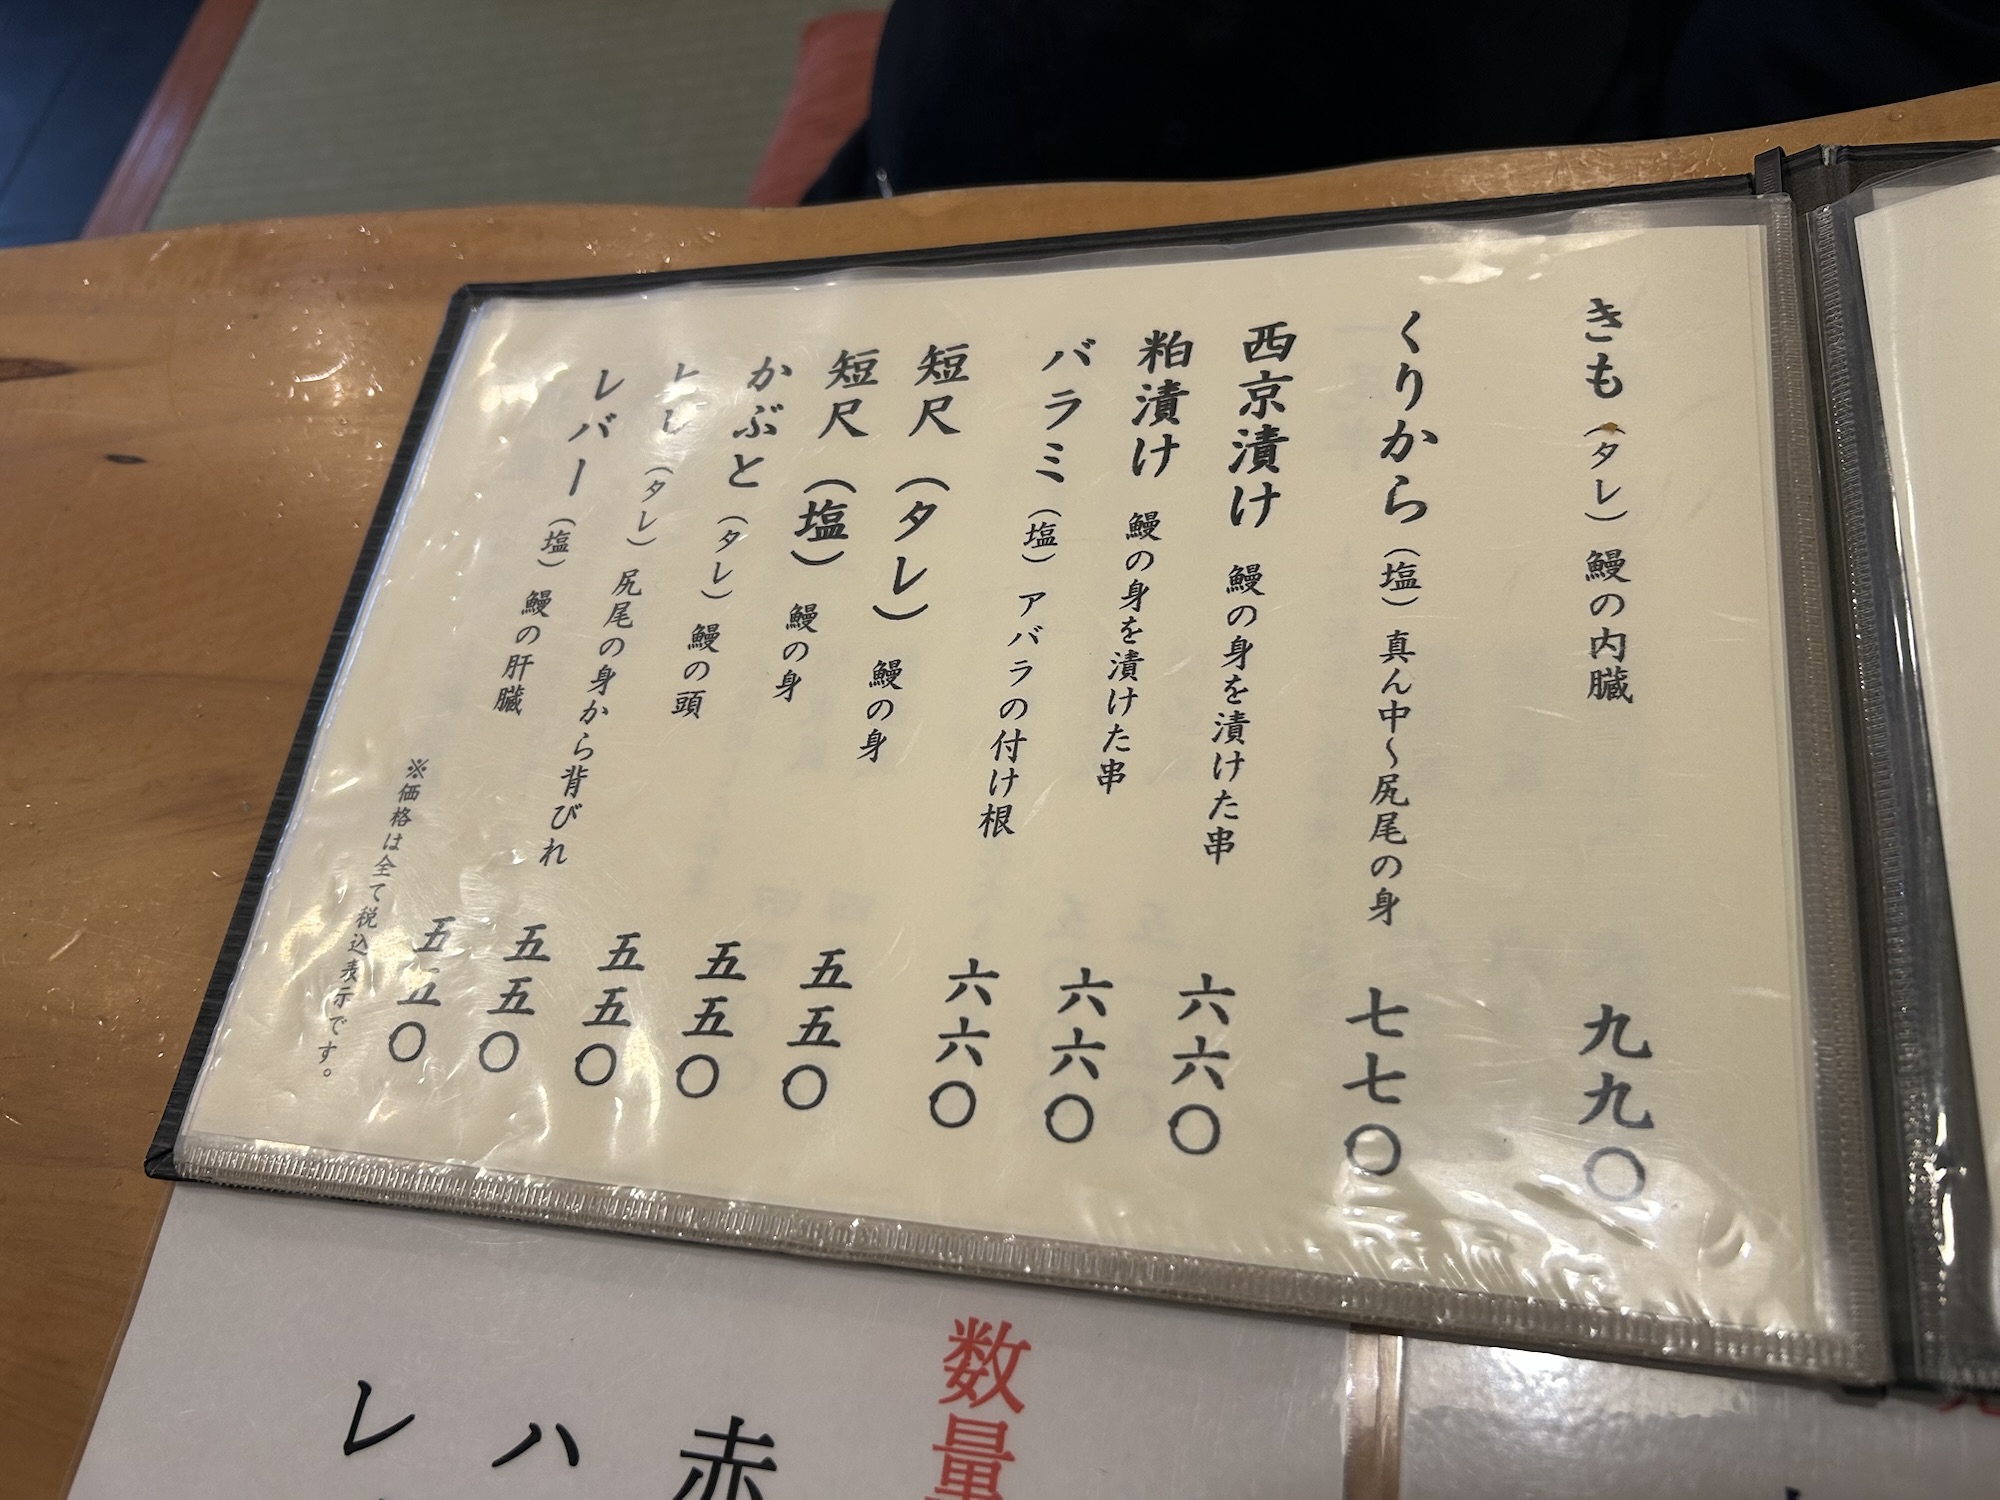 きも（タレ）鰻の内臓 九九〇
くりから（塩）真ん中〜尻尾の身 七七〇
西京漬け 鰻の身を漬けた串 六六〇
粕漬け 鰻の身を漬けた串 六六〇
バラミ（塩）アバラの付け根 六六〇
短尺（タレ）鰻の身 五五〇
短尺（塩）鰻の身 五五〇
かぶと（タレ）鰻の頭 五五〇
ヒレ（タレ）尻尾の身から背びれ 五五〇
レバー（塩）鰻の肝臓 五五〇
※価格は全て税込表示です。
数量
赤
ハ
レ